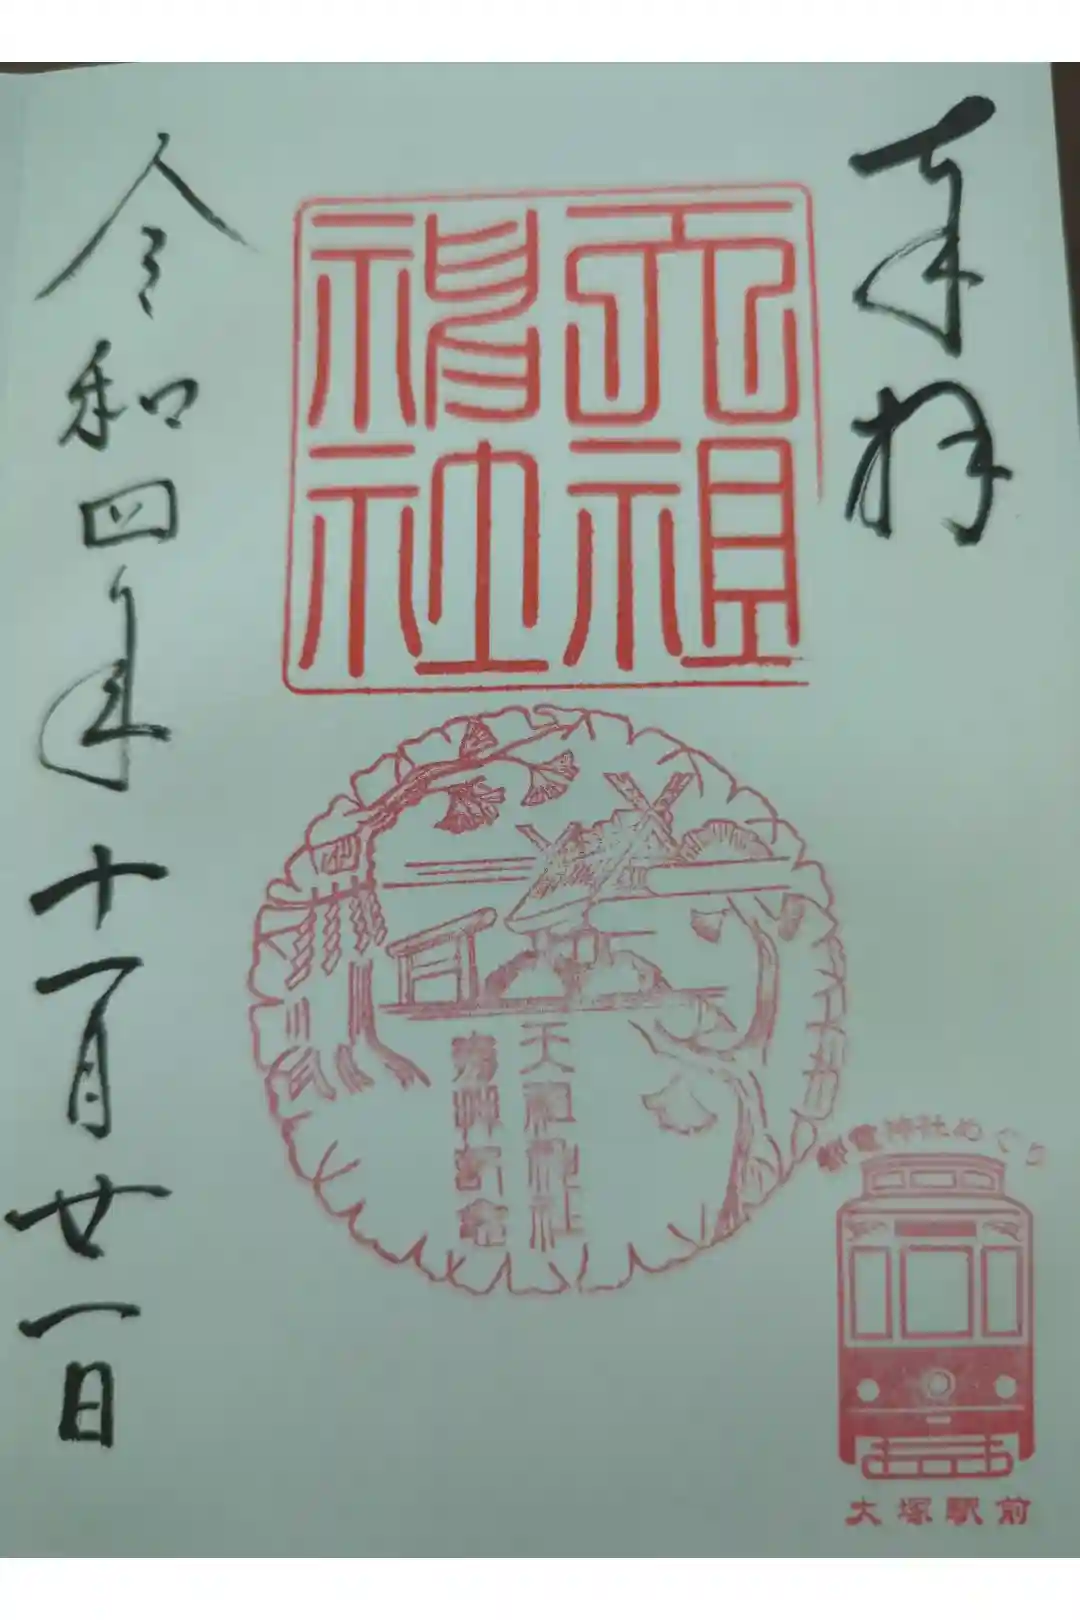 奉拝
天祖
神社
天祖神社
參拜記念
都電神社めぐり
大塚駅前
令和四年十一月廿一日